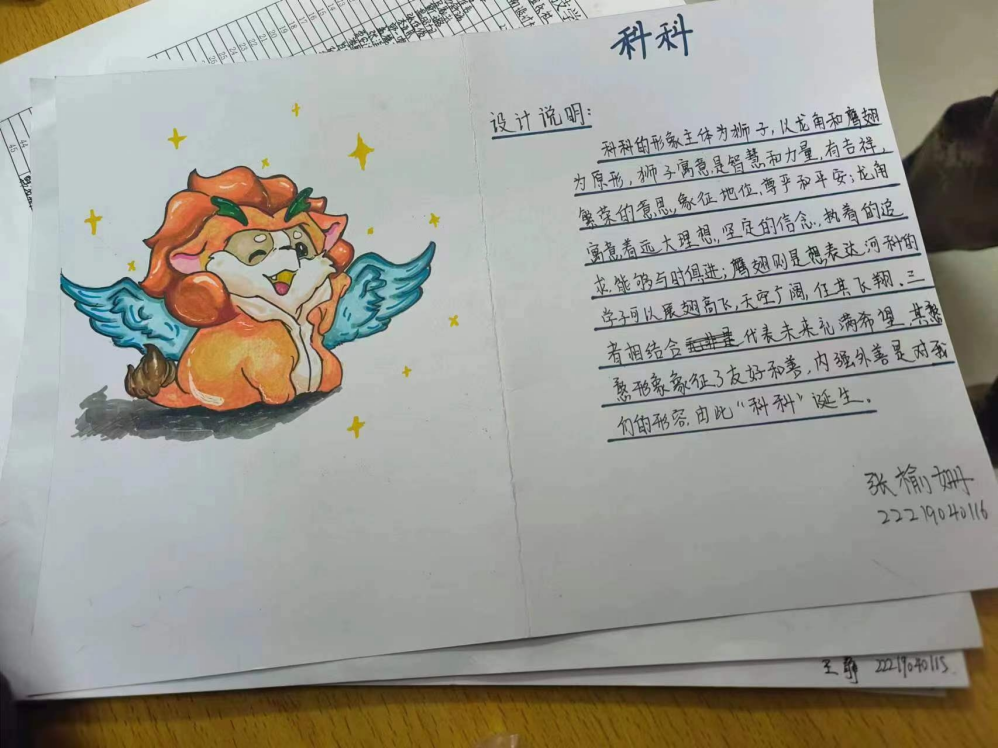 科科
设计说明:
科科的形象主体为狮子,以龙角和鹰翅
为原形,狮子寓意是智慧和力量,有吉祥,
繁荣的意思,象征地位,尊乎和平安;龙角
寓意着远大理想,坚定的信念,执着的追
求能够与时俱进;鹰翅则是想表达河科的
学子可以展翅高飞,天空广阔,任其飞翔.三
者相结合代表未来充满希望.其憨
憨形象象征了友好和善,内强外善是对我
们的形容.由此“科科”诞生.
张榆姗
22219040116
王静 22219040115.